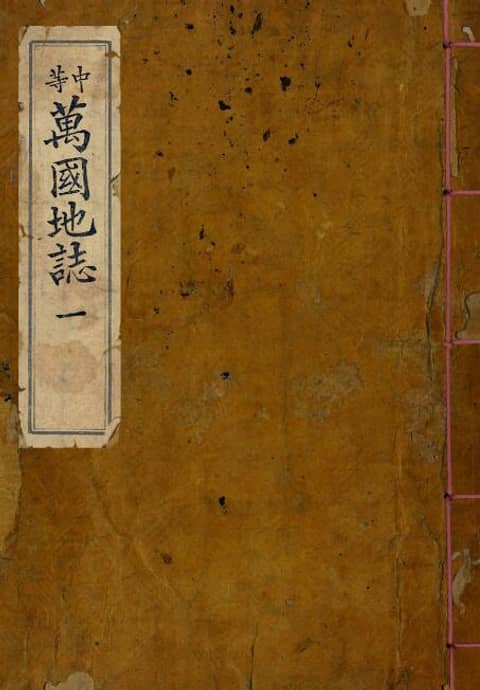 中等
萬國地誌 一